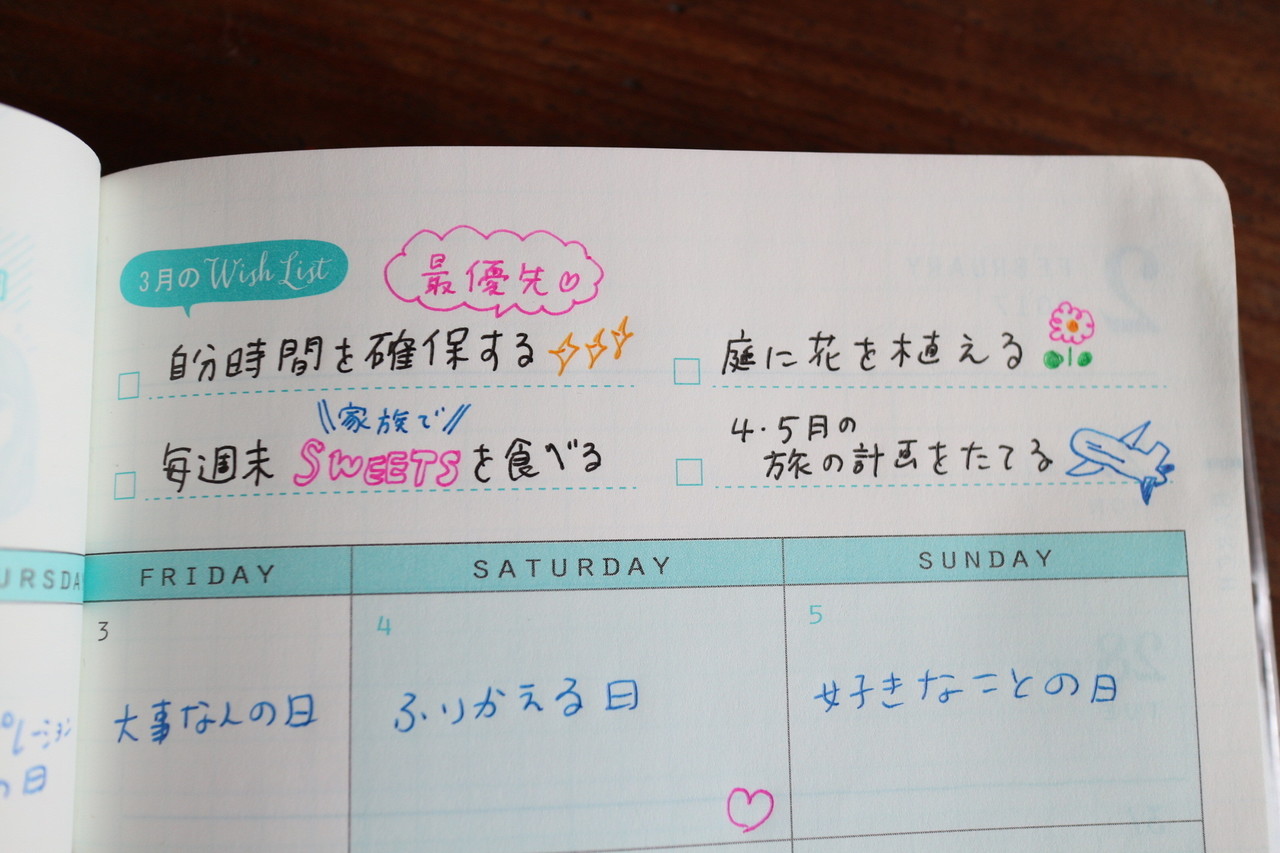 3月の Wish List
最優先
自分時間を確保する
庭に花を植える
家族で
毎週末 SWEETSを食べる
4・5月の
旅の計画をたてる
FRIDAY
SATURDAY
SUNDAY
3
4
5
大事なんの日
ふりかえる日
好きなことの日
の日